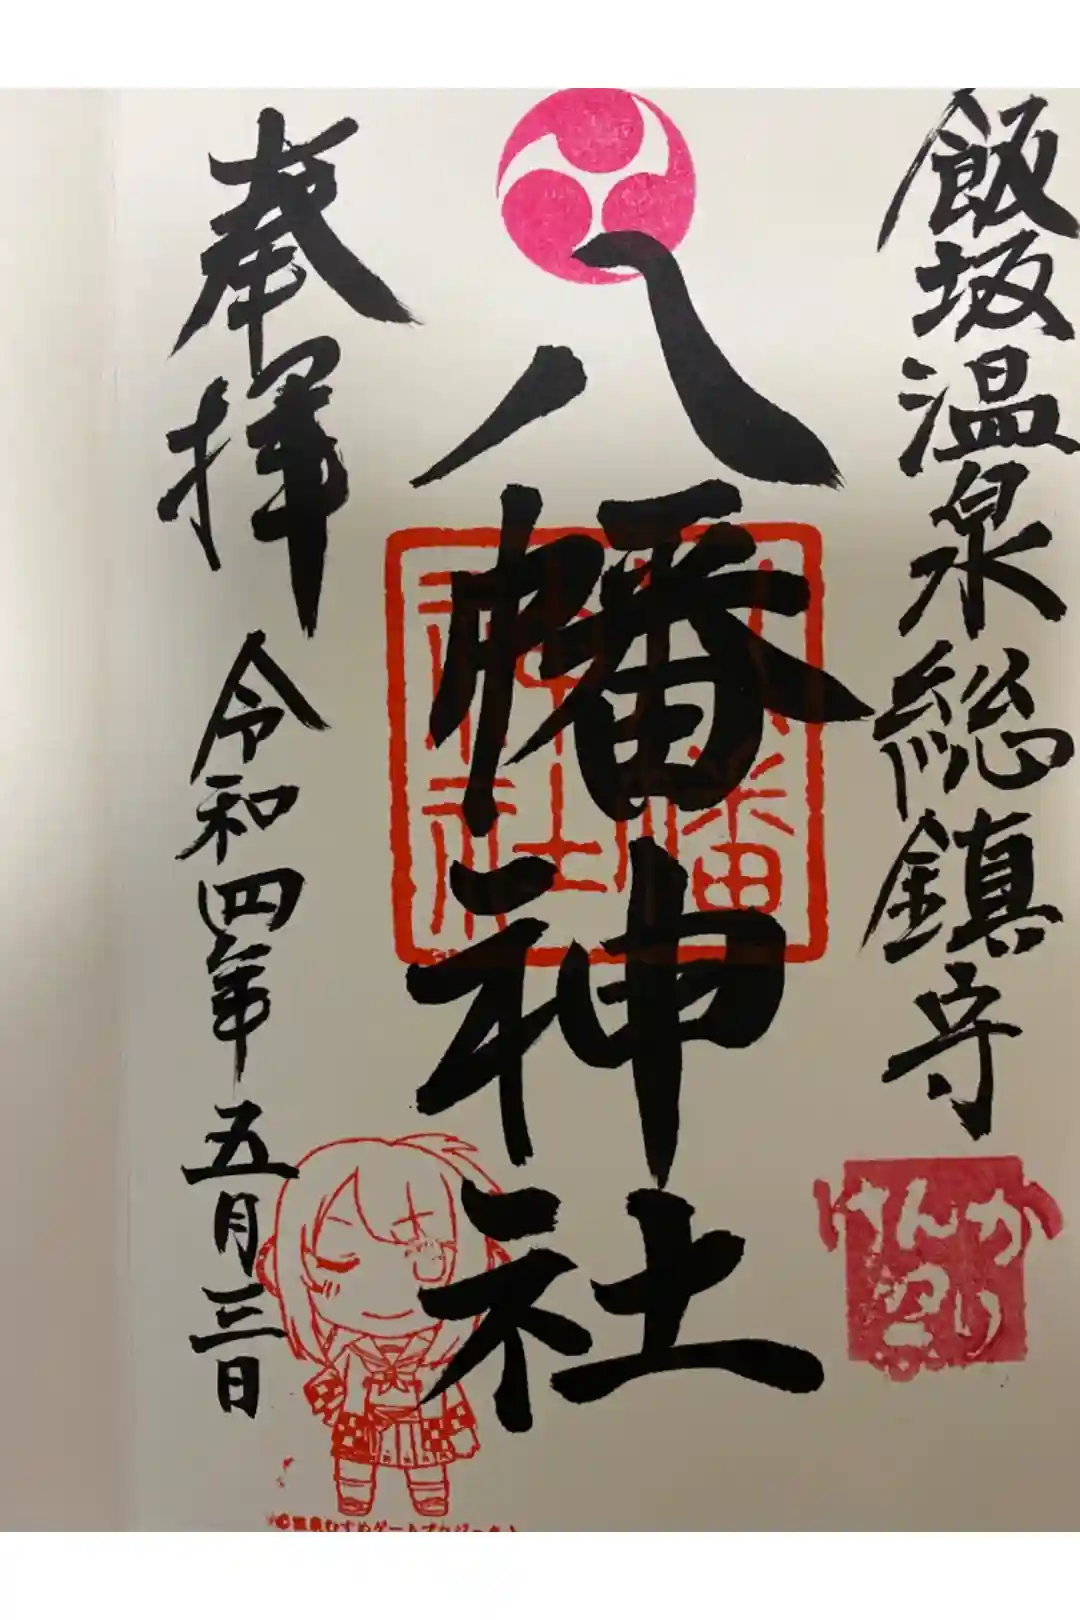 飯坂温泉総鎮守
八幡神社
奉拝
令和四年五月三日
けんか